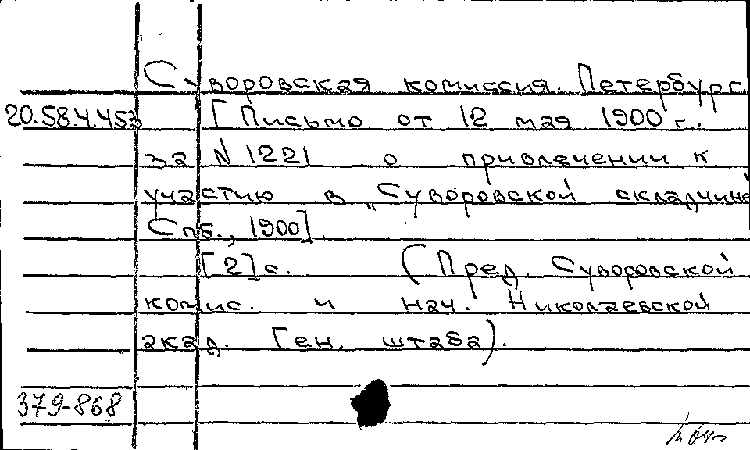 Суворовская комиссия. Петербург
20.58.4.453 [Письмо от 12 мая 1900 г.
за N 1221 о привлечении к
участию в „Суворовской складчине
Спб., 1900].
[2] с. (Пред. Суворовской
комис. и нач. Николаевской
акад. Ген. штаба).
379-868